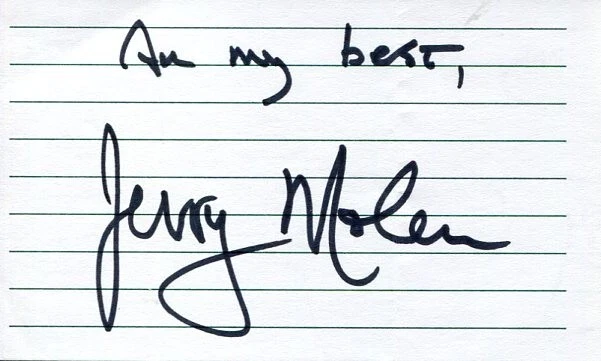 All my best,
Jerry Molen